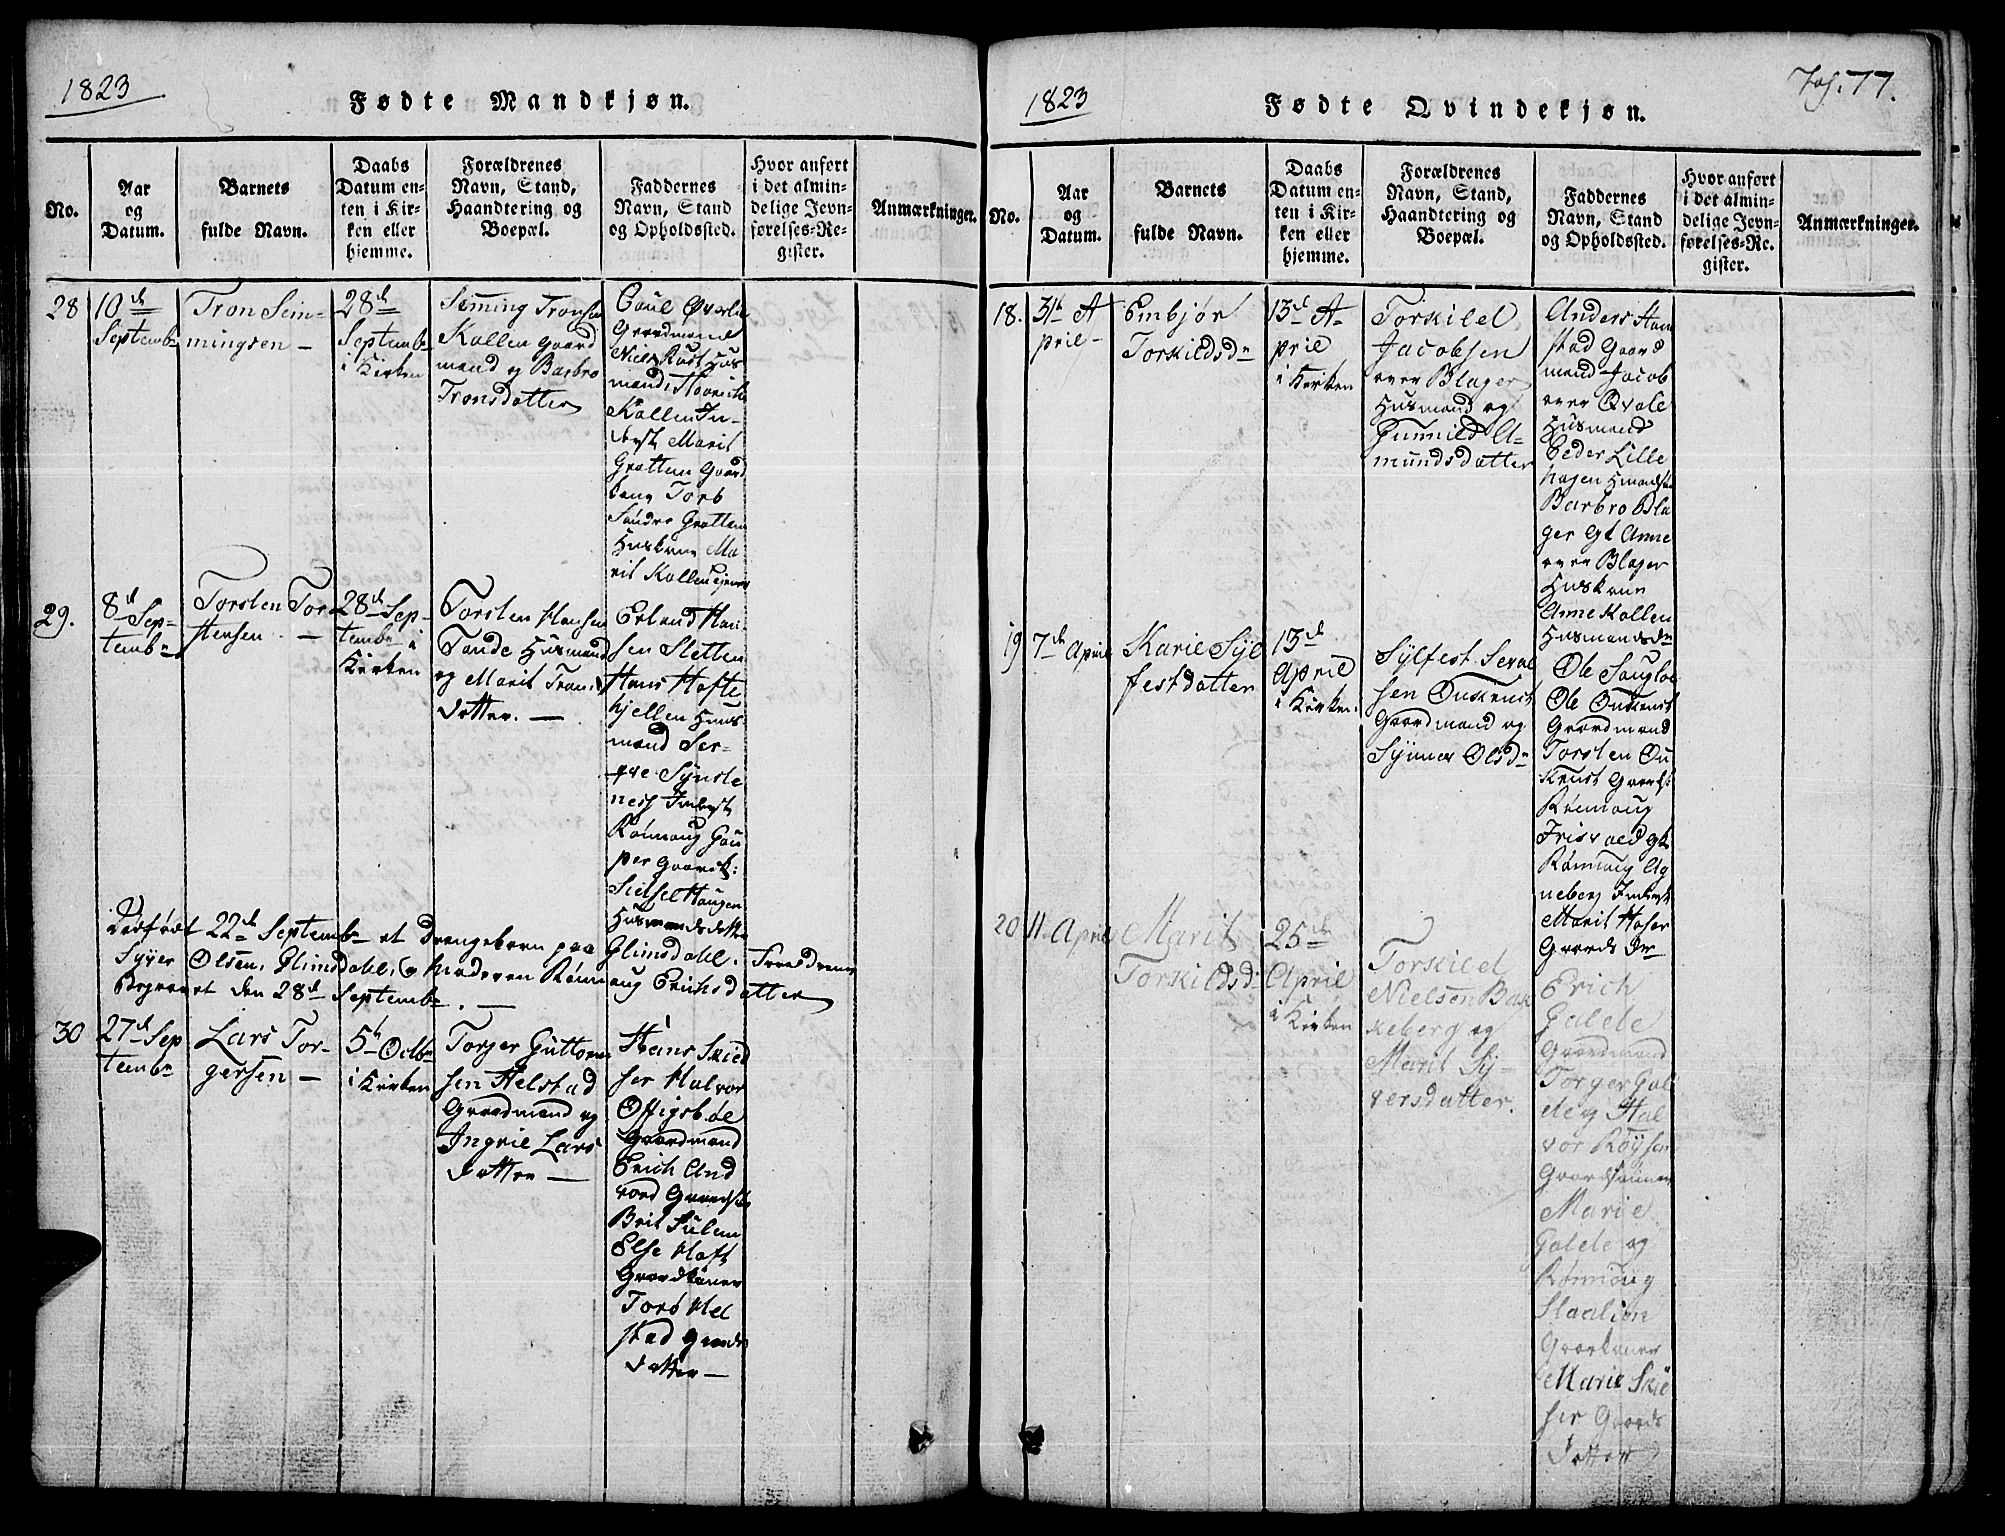 1823
Fødte Mandkjøn.
No.
Aar
og
Datum.
Barnets
fulde Navn.
Daabs
Datum en-
ten i Kir-
ken eller
hjemme.
Forældrenes
Navn, Stand,
Haandtering og
Boepæl.
Faddernes
Navn, Stand
og Opholdssted.
Hvor anført
i det almin-
delige Jevn-
førelses-Re-
gister.
Anmærkninger.
28
10de
Septembr
Tron Sem-
mingsen —
28de
Septembr
i Kirken
Semming Tronsen
Kollen Gaard
mand og Barbro
Tronsdatter
Poul Øverlie
Gaardmand
Niels Rust Hus
mand,
Kollen In-
derst Marit
Grotten Gaard
kone Torb
Søndre Grotten
Huskone Ma-
rit Kollen
29.
8de Sep-
tembr
Torsten Tor-
stensen. —
28de Sep-
tembr i
Kirken
Torsten Hansen
Tande Husmand
og Marit Trons
datter. —
Erland Han
sen Sletten
Hans Hofte
hjellen Huus
mand Ser-
qve Synste
ness Inderst
Rønnoug Gau
per Gaardk:
Sidsel Haugen
Husmandsdatter
Dødfødt 22de Septembr et Drengebarn paa Glimsdahl. Forældrene
Syver Olsen Glimsdahl, og Moderen Rønnoug Erichsdatter
Begravet den 28de Septembr. —
30
27de Sep
tembr
Lars Tor-
gersen —
5te Octbr
i Kirken
Torger Guttorm
sen Helstad
Gaardmand og
Ingrie Lars
datter —
Hans Skied
ser Halvor
Offigsbøe
Gaardmænd
Erich And
vord Gaards
Brit Sulem
Else Hoft
Gaardkoner
Torø Hel
stad Gaards
datter —
1823
Fødte Qvindekjøn.
77.
No.
Aar
og
Datum.
Barnets
fulde Navn.
Daabs
Datum en-
ten i Kir-
ken eller
hjemme.
Forældrenes
Navn, Stand,
Haandtering og
Boepæl.
Faddernes
Navn, Stand
og Opholdssted.
Hvor anført
i det almin-
delige Jevn-
førelses-Re-
gister.
Anmærkninger.
18.
31te A
pril —
Embjør
Torkildsdr
13de A-
pril
i Kirken
Torkild
Jacobsen
over Blager
Husmand og
Gunnild A-
mundsdatter
Anders Ham
stad Gaard
mand Jacob
over Qvale
Husmand
Peder Lille
hagen
Barbro Bla
ger Gk Anne
over Blager
Huskone
Anne Kollen
Husmandsdr
19
7de April
Karie Syl
festdatter
13de
April
i Kirken.
Sylfest Seval
sen Oukrust
Gaardmand og
Synnev Olsdr
Ole Sougloe
Ole Oukrust
Gaardmænd
Torsten Ou
krust Gaards:
Rønnoug
Frisvold gk
Rønnoug Ug
neberg Inderst
Marit Hoser
Gaards Dr
20
11 April
Marit
Torkildsdr
25de
April
i Kirken
Torkild
Nielsen Bak
keberg og
Marit Sy-
versdatter.
Erich
Galde
Gaardmand
Torger Gal
de og Hal
vor Røysen
Gaardsønner
Marie
Galde og
Rønnoug
Slaalien
Gaarkoner
Marie Skie
ser Gaards
datter